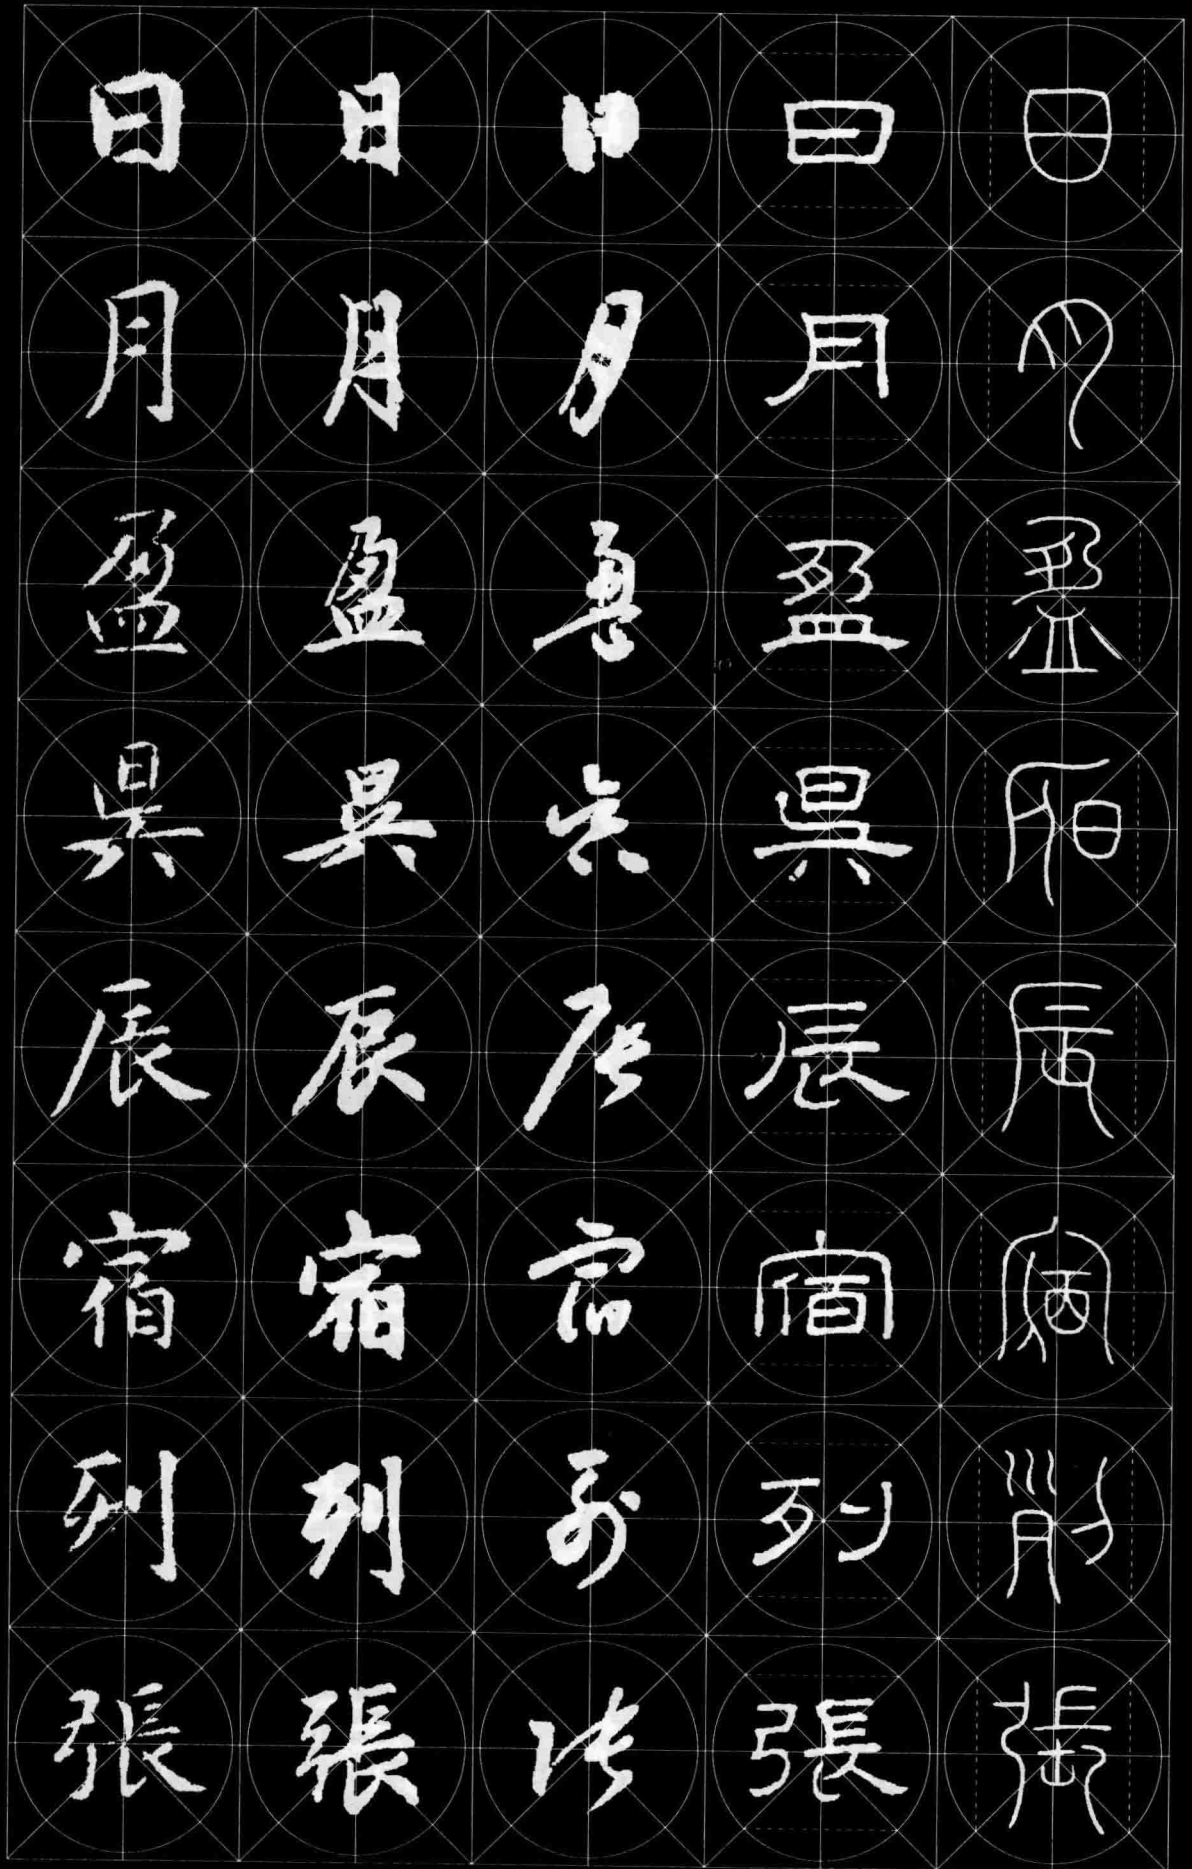 日月盈昃辰宿列張
日月盈昃辰宿列張
日月盈昃辰宿列張
日月盈昃辰宿列張
日月盈昃辰宿列張